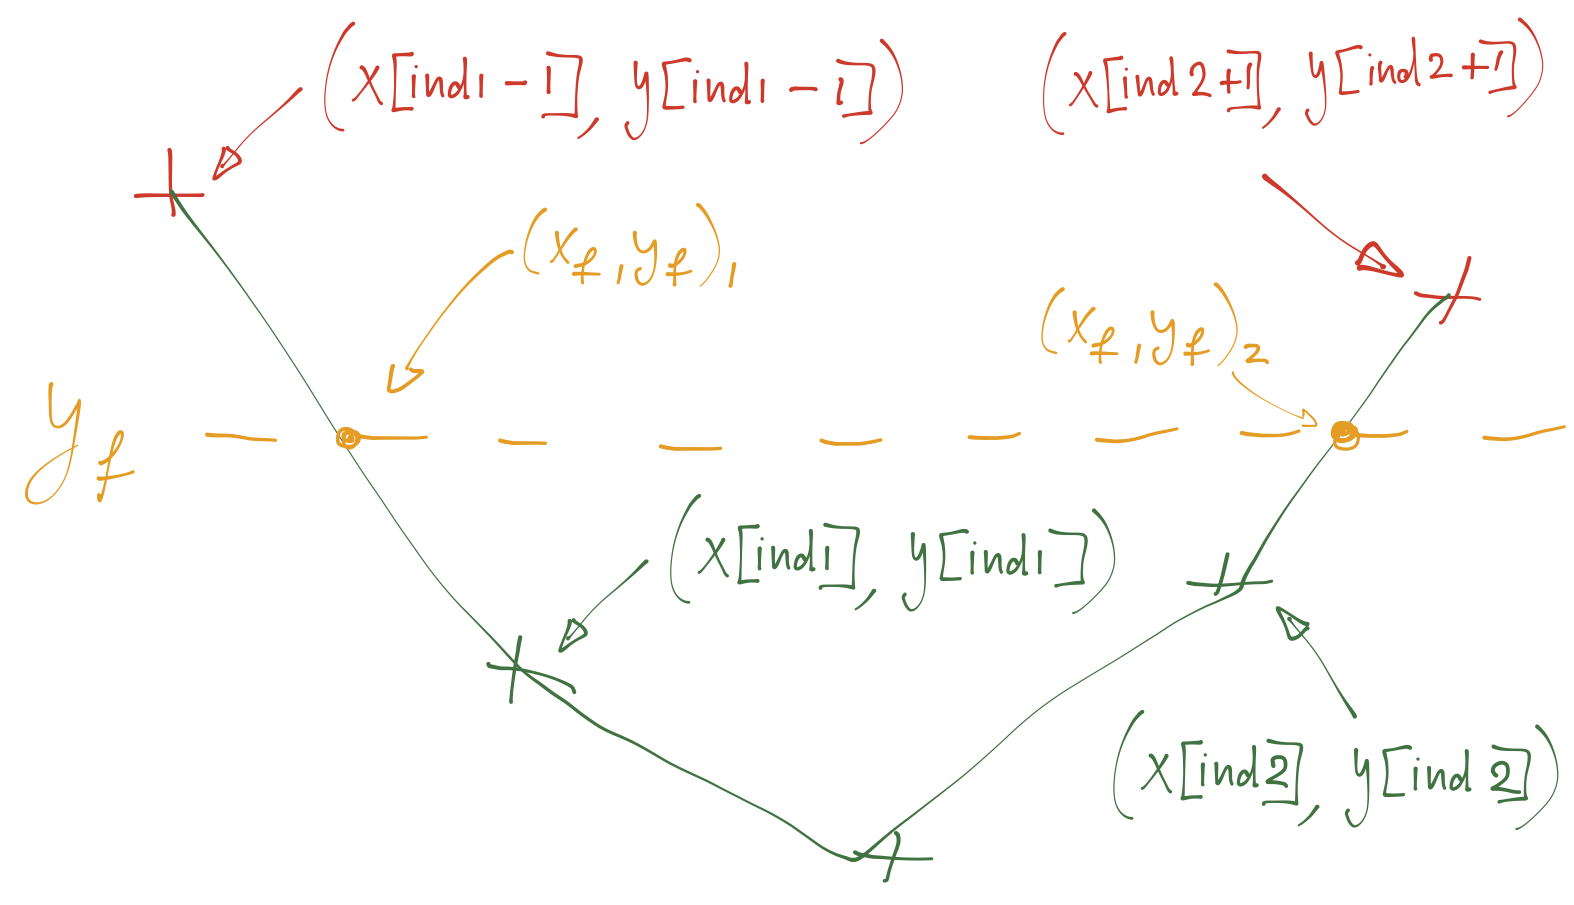 (x[ind1-1], y[ind1-1])
(x[ind2+1], y[ind2+1])
(x_f, y_f)_1
(x_f, y_f)_2
y_f
(x[ind1], y[ind1])
(x[ind2], y[ind2])